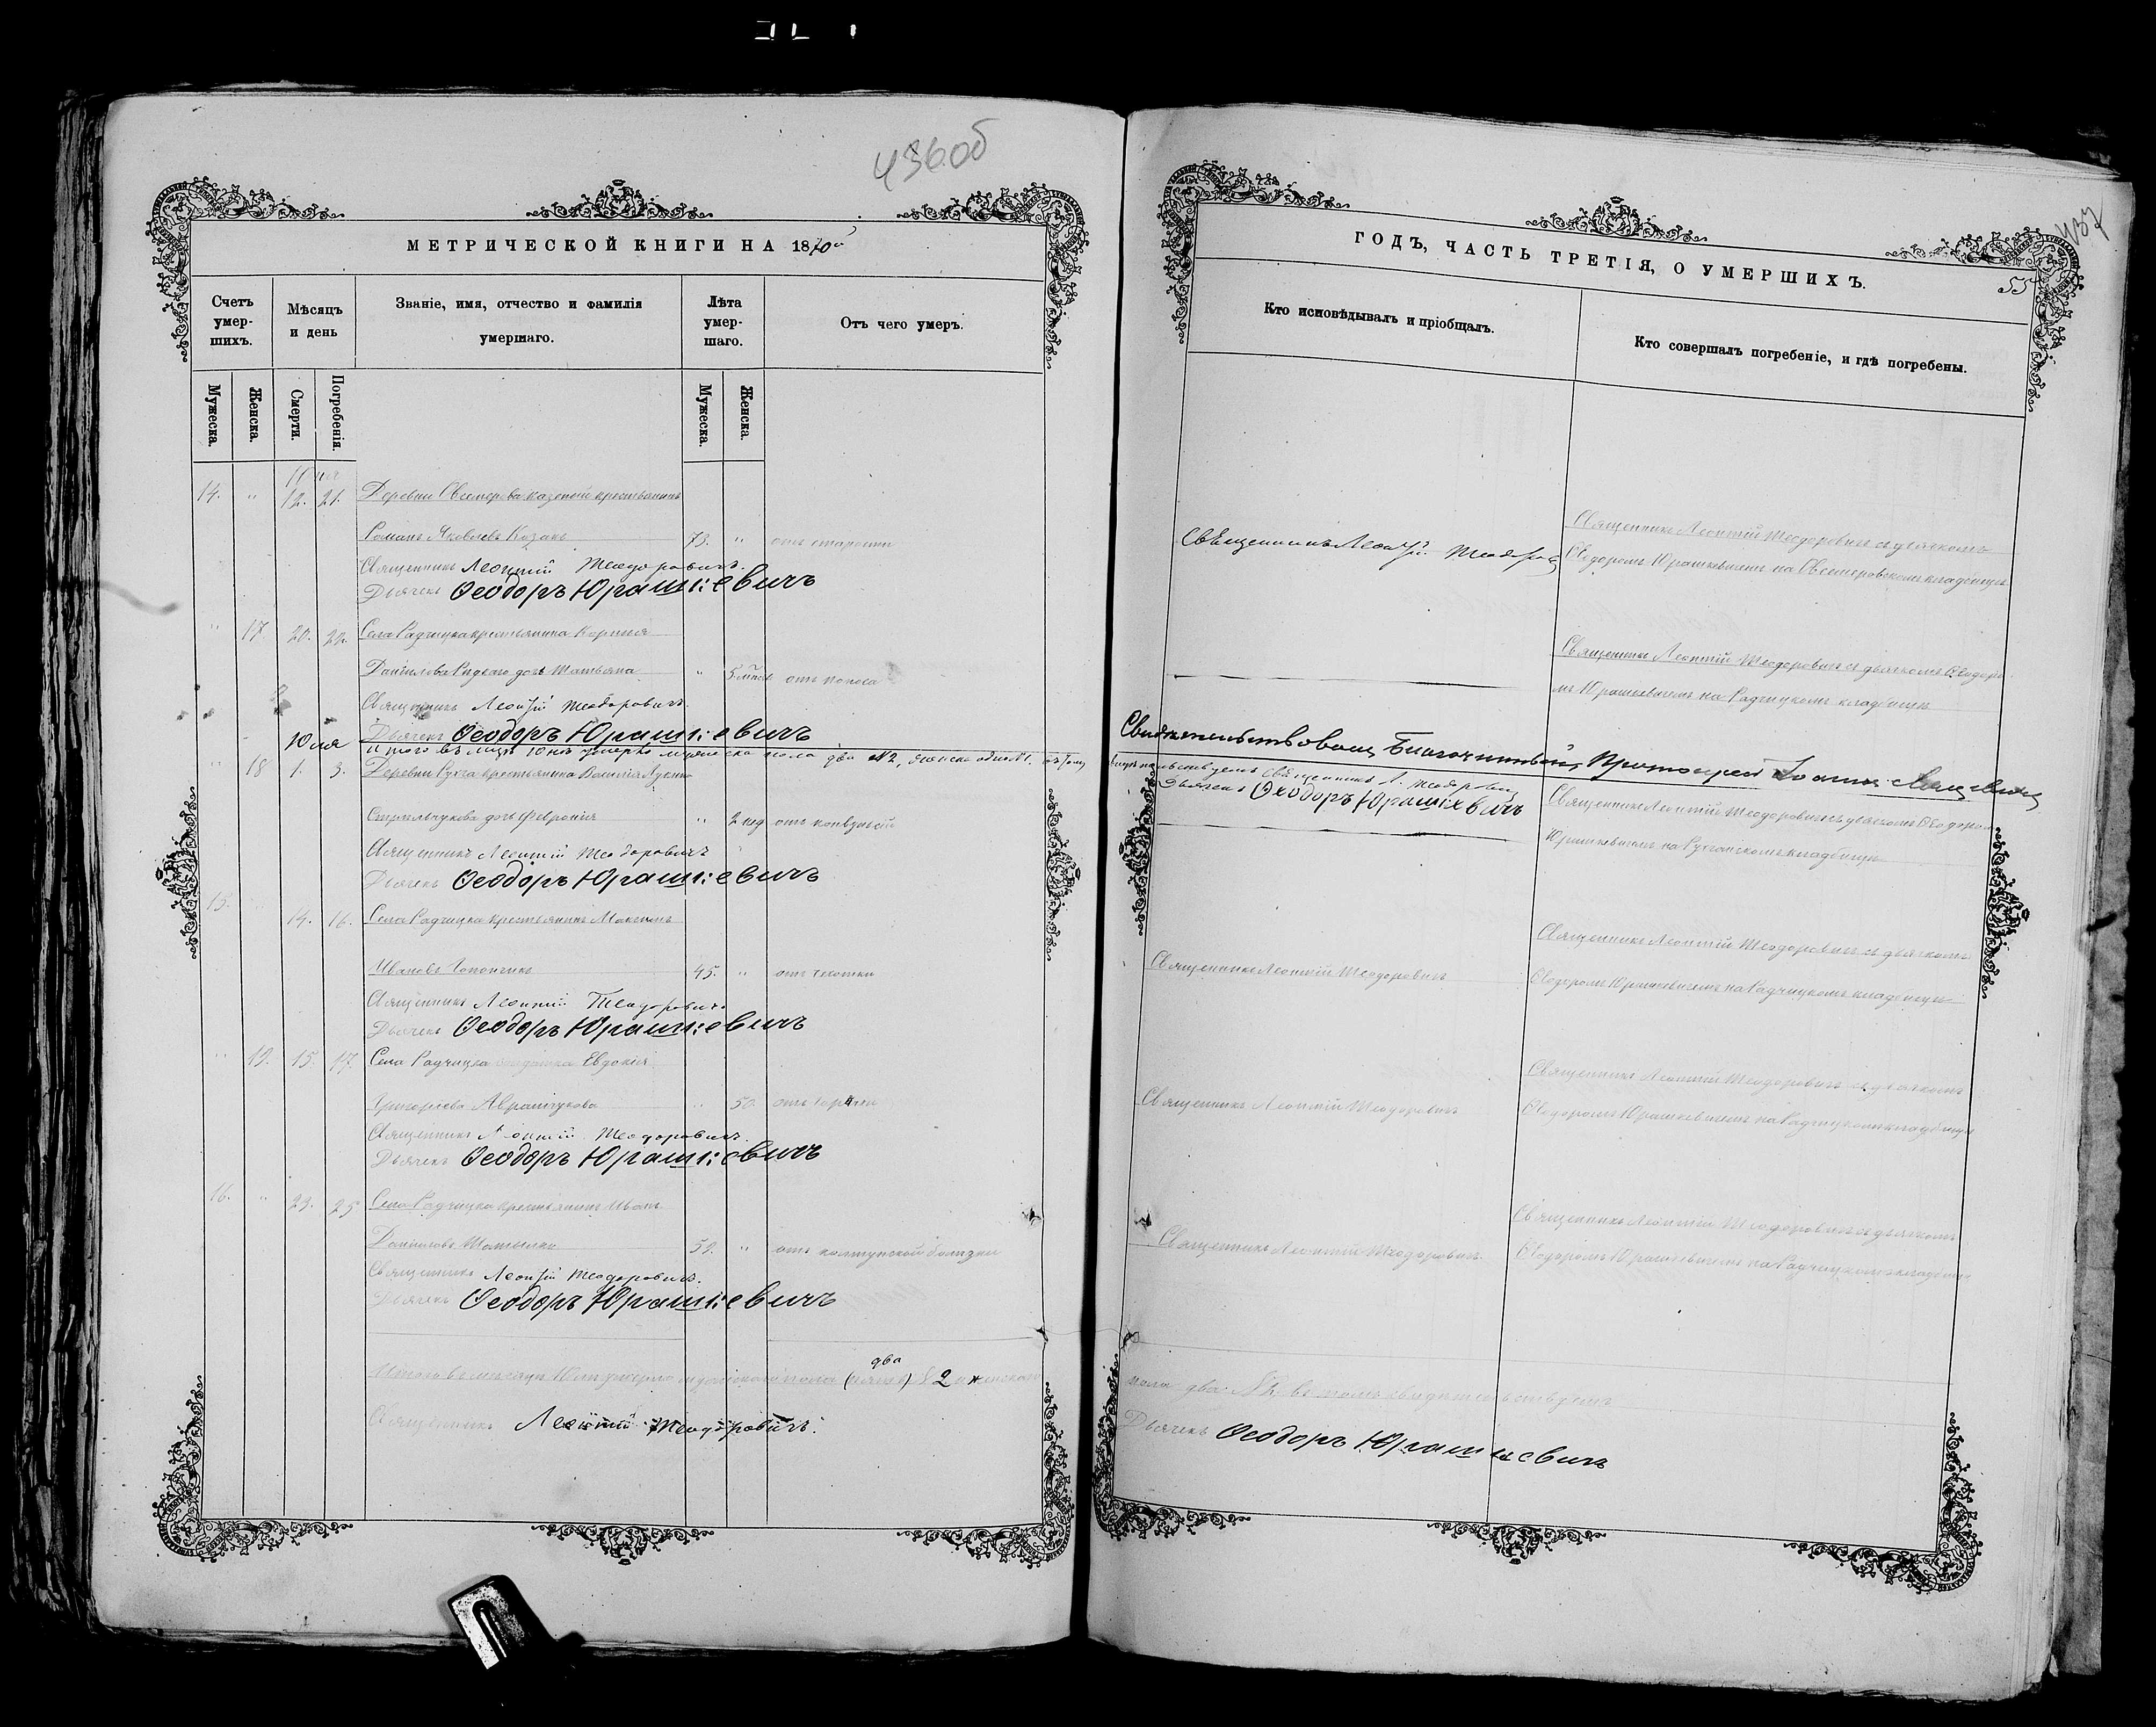 436об
МЕТРИЧЕСКОЙ КНИГИ НА 1870й
Счетъ умер-шихъ.
Мѣсяцъ и день
Званіе, имя, отчество и фамилія умершаго.
Лѣта умер-шаго.
Отъ чего умеръ.
Мужеска.
Женска.
Смерти.
Погребенія.
Мужеска.
Женска.
Июня
14. " 12. 21. Деревни казенный крестьянинъ
Романъ Яковлевъ Козакъ 73. " отъ старости
Священникъ Леонтій Теодоровичъ.
Дьячекъ Ѳеодоръ Юрашкевичъ
" 17. 20. 22. Села Радчицка крестьянина Корнилія
Данилова дочь Татьяна " 5 отъ поноса
Священникъ Леонтій Теодоровичъ.
Дьячекъ Ѳеодоръ Юрашкевичъ
Итого въ Юнѣ умерло мужеска пола два №2, женска одна №1. въ томъ
Юля
" 18 1. 3. Деревни Рухча крестьянина Василія
дочь Феєронія " 2 нед отъ конвульсій
Священникъ Леонтій Теодоровичъ
Дьячекъ Ѳеодоръ Юрашкевичъ
15. 14. 16. Села Радчицка крестьянинъ Максимъ
Ивановъ 45. " отъ чахотки
Священникъ Леонтій Теодоровичъ
Дьячекъ Ѳеодоръ Юрашкевичъ
" 19. 15. 17. Села Радчицка Евдокія
Григорьева Аврамчукова " 50. отъ горячки
Священникъ Леонтій Теодоровичъ.
Дьячекъ Ѳеодоръ Юрашкевичъ
16. " 23. 25 Села Радчицка крестьянинъ Иванъ
Даниловъ 59. " отъ колтунской болѣзни
Священникъ Леонтій Теодоровичъ.
Дьячекъ Ѳеодоръ Юрашкевичъ
два
Итого въ мѣсяцѣ Юлѣ умерло мужескаго пола 2 и женскаго
Священникъ Леонтій Теодоровичъ.
437
ГОДЪ, ЧАСТЬ ТРЕТІЯ, О УМЕРШИХЪ.
55
Кто исповѣдывалъ и пріобщалъ.
Кто совершалъ погребеніе, и гдѣ погребены.
Священникъ Леонтій Теодоровичъ съ дьячкомъ
Священникъ Леонтій Теодоров
Ѳеодоромъ Юрашкевичемъ на кладбищѣ
Священникъ Леонтій Теодоровичъ съ дьячкомъ Ѳеодоро
мъ Юрашкевичемъ на Радчицкомъ кладбищѣ
Свидѣтельствовалъ Благочинный, Протоіерей Іоаннъ
свидѣтельствуемъ Священникъ Л. Теодоровичъ
Дьячекъ Ѳеодоръ Юрашкевичъ
Священникъ Леонтій Теодоровичъ съ дьячкомъ Ѳеодоромъ
Юрашкевичемъ на кладбищѣ
Священникъ Леонтій Теодоровичъ съ дьячкомъ
Священникъ Леонтій Теодоровичъ
Ѳеодоромъ Юрашкевичемъ на Радчицкомъ кладбищѣ
Священникъ Леонтій Теодоровичъ съ дьячкомъ
Священникъ Леонтій Теодоровичъ
Ѳеодоромъ Юрашкевичемъ на Радчицкомъ кладбищѣ
Священникъ Леонтій Теодоровичъ съ дьячкомъ
Священникъ Леонтій Теодоровичъ
Ѳеодоромъ Юрашкевичемъ на Радчицкомъ кладбищѣ
пола два №2. въ томъ свидѣтельствуемъ
Дьячекъ Ѳеодоръ Юрашкевичъ